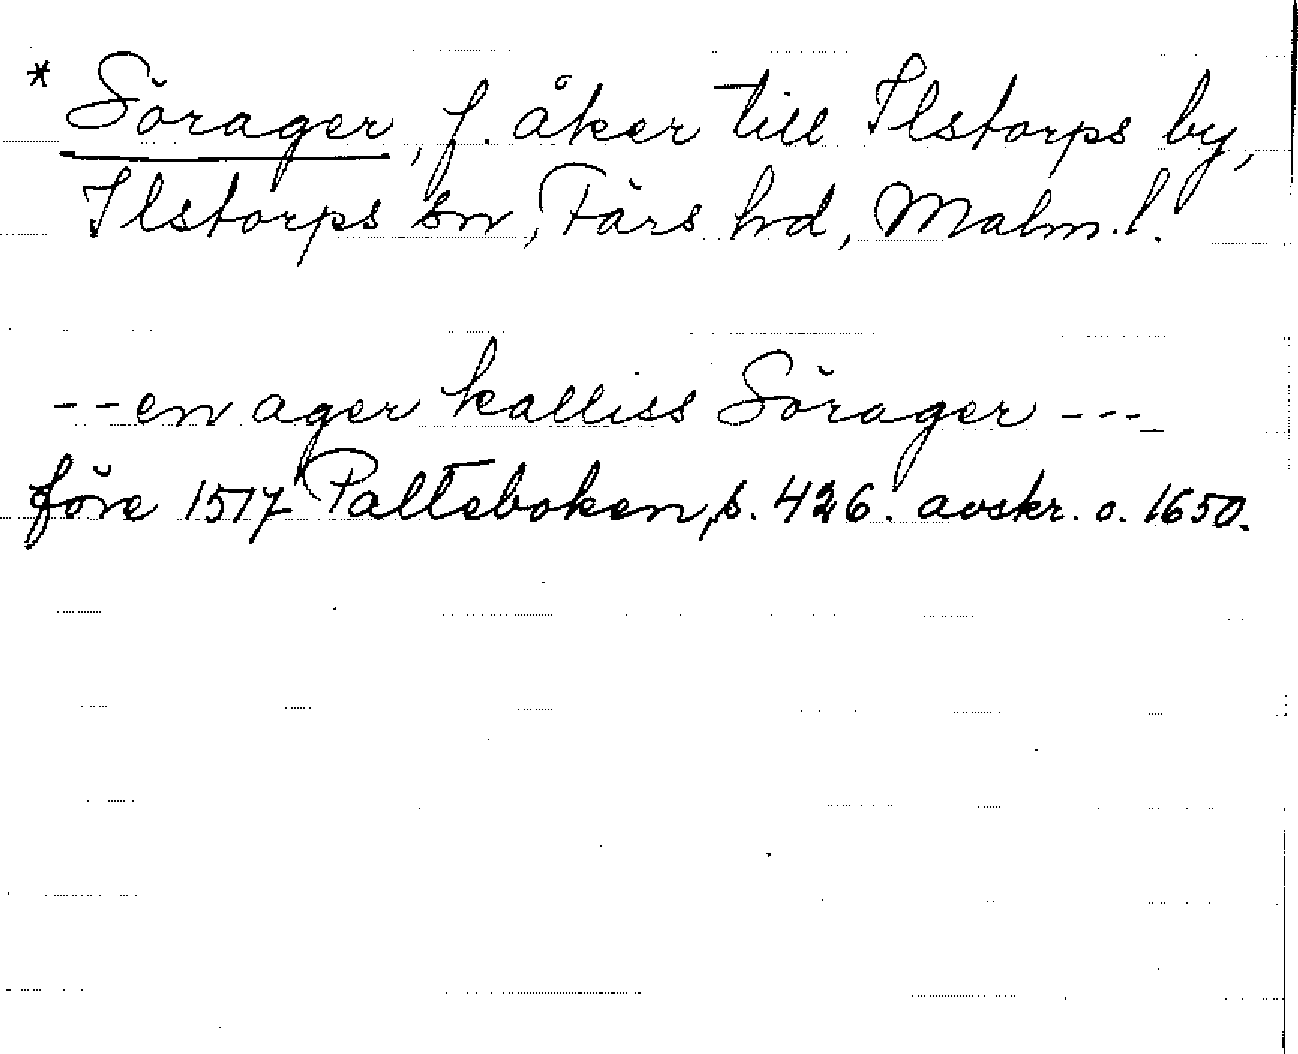 * Sörager, f. åker till Ilstorps by,
Ilstorps sn, Färs hd, Malm. l.
--en ager kalliss Sörager ----
före 1517 Palteboken, s. 426. avskr. o. 1650.